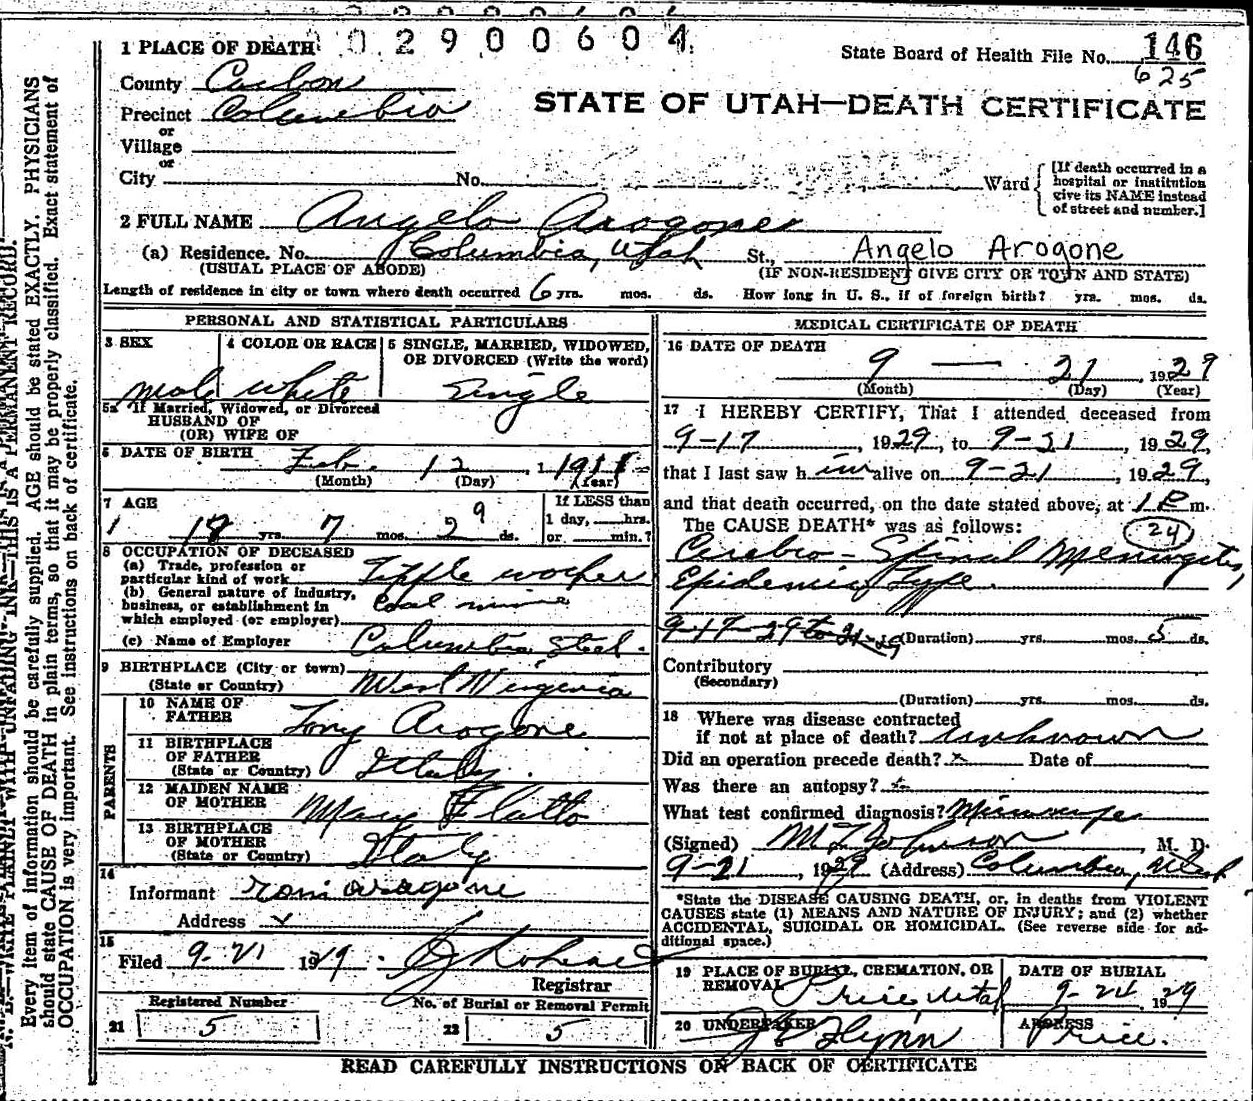 0 2 9 0 0 6 0 4
1 PLACE OF DEATH
State Board of Health File No. 146
625
County Carbon
Precinct Columbia
STATE OF UTAH—DEATH CERTIFICATE
or
Village
or
City No. Ward
[If death occurred in a hospital or institution give its NAME instead of street and number.]
2 FULL NAME Angelo Arogone
(a) Residence. No. Columbia, Utah St., Angelo Arogone
(USUAL PLACE OF ABODE) (IF NON-RESIDENT GIVE CITY OR TOWN AND STATE)
Length of residence in city or town where death occurred 6 yrs. mos. ds. How long in U. S., if of foreign birth? yrs. mos. ds.
PERSONAL AND STATISTICAL PARTICULARS
3 SEX 4 COLOR OR RACE 5 SINGLE, MARRIED, WIDOWED, OR DIVORCED (Write the word)
Male White Single
5a If Married, Widowed, or Divorced
HUSBAND OF
(OR) WIFE OF
6 DATE OF BIRTH Feb. 12, 1911
(Month) (Day) (Year)
7 AGE If LESS than
18 yrs. 7 mos. 29 ds. 1 day, hrs.
or min.?
8 OCCUPATION OF DECEASED
(a) Trade, profession or
particular kind of work Tipple worker
(b) General nature of industry,
business, or establishment in Coal mine
which employed (or employer)
(c) Name of Employer Columbia Steel.
9 BIRTHPLACE (City or town)
(State or Country) West Virginia
PARENTS
10 NAME OF
FATHER Tony Arogone
11 BIRTHPLACE
OF FATHER
(State or Country) Italy.
12 MAIDEN NAME
OF MOTHER Mary Flatto
13 BIRTHPLACE
OF MOTHER
(State or Country) Italy
14
Informant Toni aragone
Address
15
Filed 9-21 19
Registrar
Registered Number No. of Burial or Removal Permit
21 5 22 5
MEDICAL CERTIFICATE OF DEATH
16 DATE OF DEATH
9 — 21, 1929
(Month) (Day) (Year)
17 I HEREBY CERTIFY, That I attended deceased from
9-17, 1929, to 9-21, 1929,
that I last saw him alive on 9-21, 1929,
and that death occurred, on the date stated above, at 1 P m.
The CAUSE DEATH* was as follows: 24
Cerebro-Spinal Meningitis,
Epidemic Type.
9-17-29 to 21-29 (Duration) yrs. mos. 5 ds.
Contributory
(Secondary)
(Duration) yrs. mos. ds.
18 Where was disease contracted
if not at place of death? unknown
Did an operation precede death? Date of
Was there an autopsy?
What test confirmed diagnosis? Microscope
(Signed) M. D.
9-21, 1929 (Address) Columbia, Utah
*State the DISEASE CAUSING DEATH, or, in deaths from VIOLENT
CAUSES state (1) MEANS AND NATURE OF INJURY; and (2) whether
ACCIDENTAL, SUICIDAL OR HOMICIDAL. (See reverse side for ad-
ditional space.)
19 PLACE OF BURIAL, CREMATION, OR
REMOVAL Price, Utah
DATE OF BURIAL
9-24 1929
20 UNDERTAKER J E Flynn
ADDRESS
Price.
READ CAREFULLY INSTRUCTIONS ON BACK OF CERTIFICATE
N. B.—WRITE PLAINLY WITH UNFADING INK—THIS IS A PERMANENT RECORD.
Every item of information should be carefully supplied. AGE should be stated EXACTLY. PHYSICIANS
should state CAUSE OF DEATH in plain terms, so that it may be properly classified. Exact statement of
OCCUPATION is very important. See instructions on back of certificate.